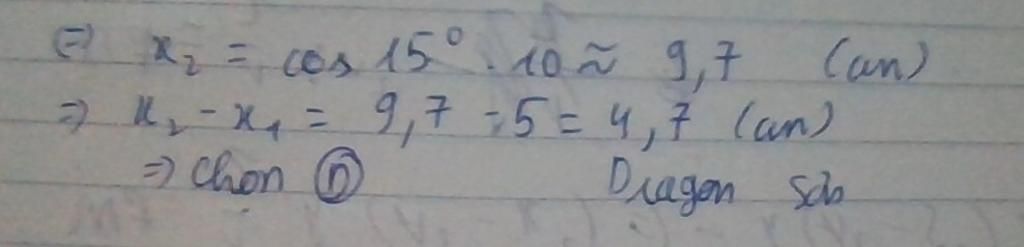 ⇒ x₂ = cos 15° . 10 ≈ 9,7 (cm)
⇒ x₂ - x₁ = 9,7 - 5 = 4,7 (cm)
⇒ Chọn Ⓓ Dragon